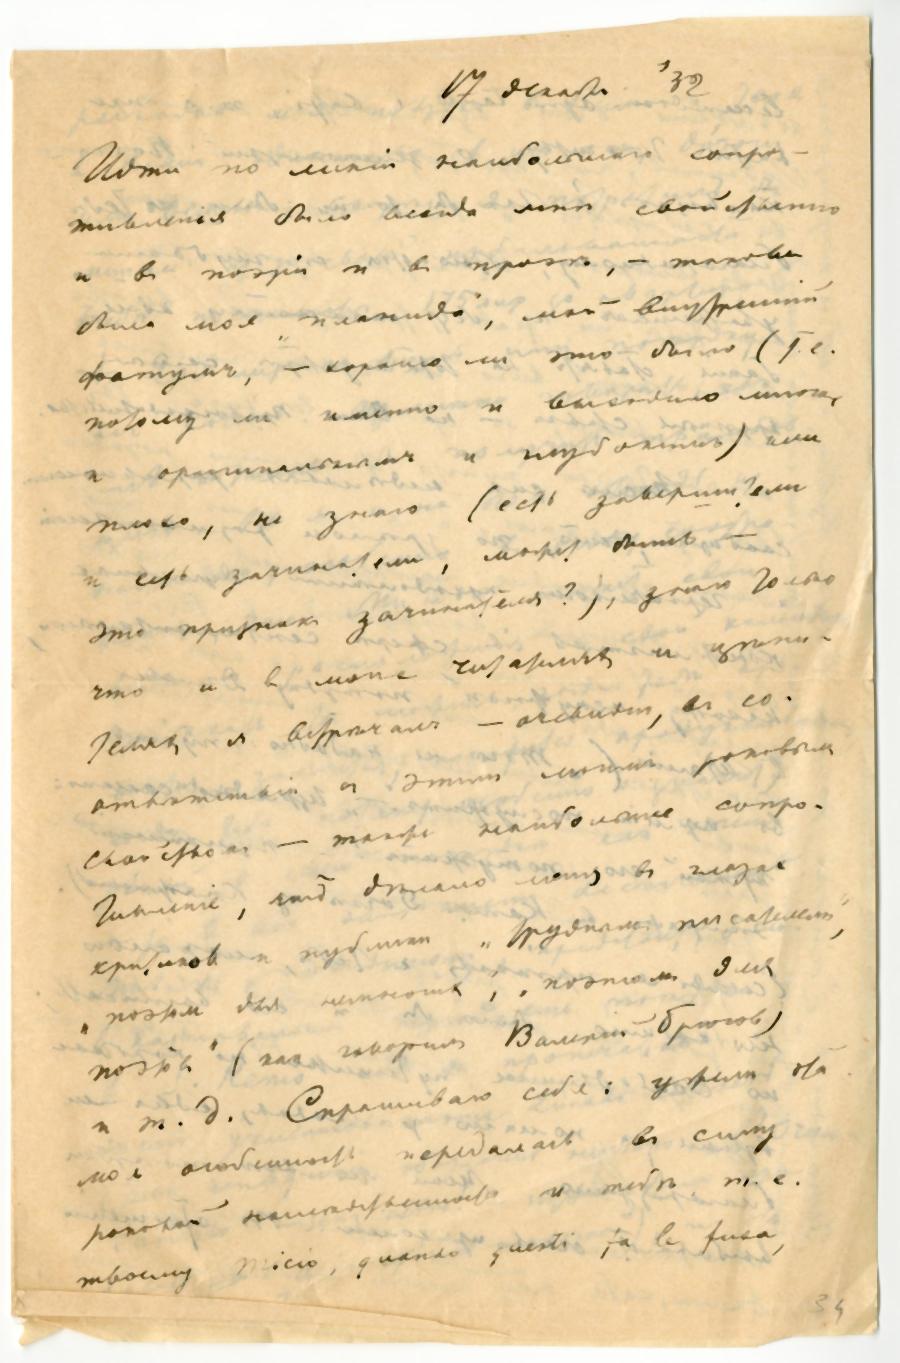 17 декабря '32
Идти по линіи наибольшаго сопро-
тивленія было всегда мнѣ свойственно
и въ поэзіи и въ прозѣ, — такова
была моя „планида", мой внутренній
фатумъ, — хорошо ли это было (т.е.
потому ли именно и выходило многое
и оригинальнымъ и глубокимъ) или
плохо, не знаю (есть завершители
и есть зачинатели, можетъ быть —
это признакъ зачинателя?), знаю только
что и въ моихъ читателяхъ и цѣни-
теляхъ я встрѣчалъ — очевидно, въ со-
отвѣтствіи съ этимъ моимъ роковымъ
свойствомъ — также наибольшее сопро-
тивленіе, что дѣлало меня въ глазахъ
критиковъ и публики „труднымъ писателемъ",
„поэтом для немногихъ", „поэтомъ для
поэтовъ" (какъ говорилъ Валерій Брюсов)
и т. д. Спрашиваю себя: ужели эта
моя особенность передалась въ силу
роковой наслѣдственности и тебѣ т. е.
твоему micio, quando questi fa le fusa,
34